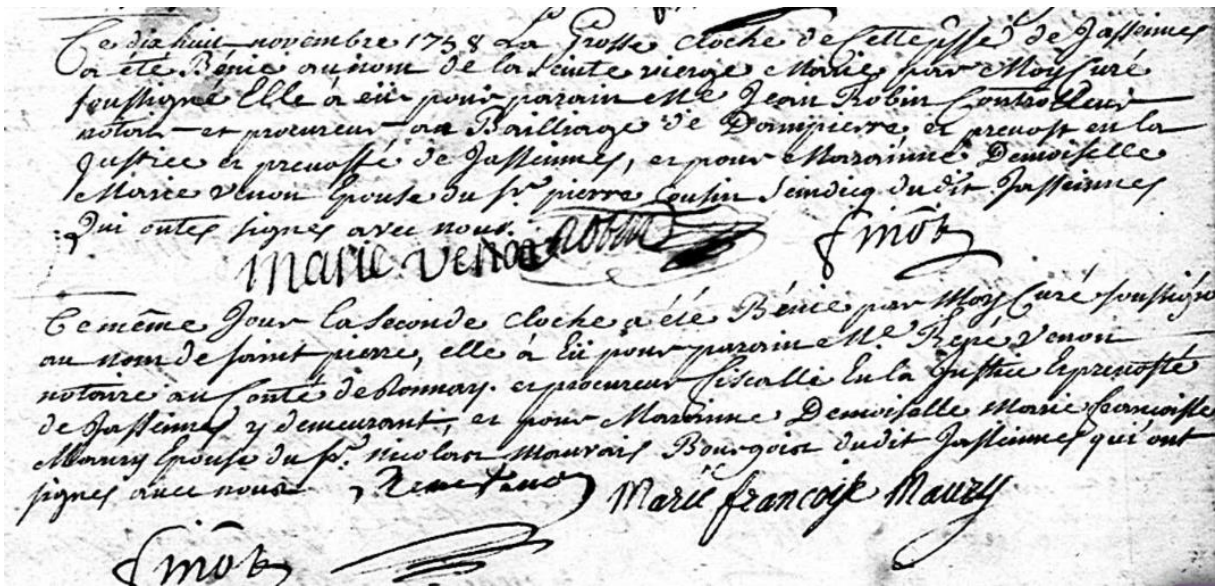 Ce dix huit novembre 1738 La Grosse cloche de Cette psse de Jasseines
a été Bénie au nom de la Sainte vierge Marie par Moy Curé
soussigné Elle à eü pour parain Me Jean Robin Controlleur
notaire et procureur au Bailliage de Dampierre et prevost en la
Justice et prevosté de Jasseinnes, et pour Marainne Demoiselle
Marie Venon Epouse du Sr pierre Cousin Seindicq dudit Jasseinnes
Qui ontes signes avec nous.
Marie Venon Robin
Ce même Jour la Seconde cloche a été Bénie par Moy Curé soussigné
au nom de saint pierre, elle à Eü pour parain Me René Venon
notaire au Conté de Ronnay. et procureur fiscalle En la Justice Et prevosté
de Jasseines y demeurant, et pour Marainne Demoiselle Marie francoisse
Maury Epouse du Sr. nicolas Mauvais Bourgois dudit Jasseinnes qui ont
signes avec nous René Venon Marie francoise Maury